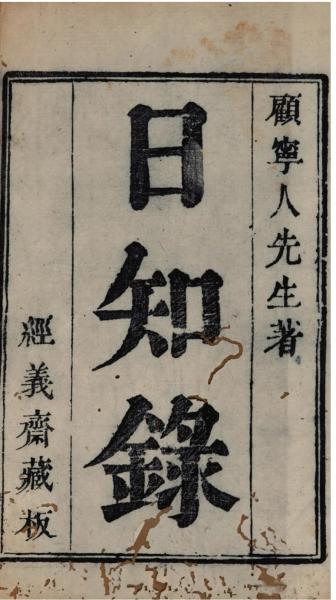 顧寧人先生著
日知錄
經義齋藏板